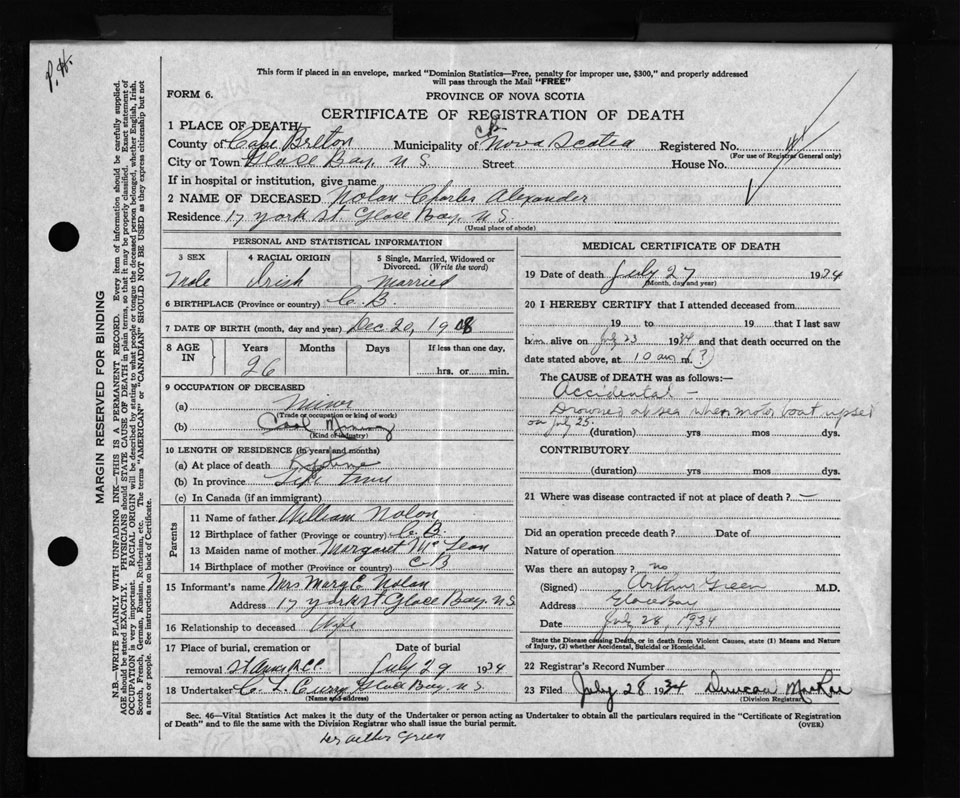 P.H.
This form if placed in an envelope, marked "Dominion Statistics—Free, penalty for improper use, $300," and properly addressed
will pass through the Mail "FREE"
FORM 6.
PROVINCE OF NOVA SCOTIA
CERTIFICATE OF REGISTRATION OF DEATH
1 PLACE OF DEATH
County of Cape Breton Municipality of C.B. Nova Scotia Registered No.
(For use of Registrar General only)
City or Town Glace Bay, N S Street House No.
If in hospital or institution, give name
2 NAME OF DECEASED Nolan Charles Alexander
Residence 17 York St. Glace Bay, N S.
(Usual place of abode)
PERSONAL AND STATISTICAL INFORMATION
3 SEX 4 RACIAL ORIGIN 5 Single, Married, Widowed or
Divorced. (Write the word)
Male Irish Married
6 BIRTHPLACE (Province or country) C. B.
7 DATE OF BIRTH (month, day and year) Dec 20, 1908
8 AGE IN Years Months Days If less than one day,
26 hrs. or min.
9 OCCUPATION OF DECEASED
(a) Miner
(Trade or occupation or kind of work)
(b) Coal Mining
(Kind of industry)
10 LENGTH OF RESIDENCE (in years and months)
(a) At place of death
(b) In province Life time
(c) In Canada (if an immigrant)
Parents
11 Name of father William Nolan
12 Birthplace of father (Province or country) C. B.
13 Maiden name of mother Margaret McLean
14 Birthplace of mother (Province or country) C B
15 Informant's name Mrs Mary E Nolan
Address 17 York St Glace Bay, N S.
16 Relationship to deceased Wife
17 Place of burial, cremation or Date of burial
removal St Anns RCC July 29 1934
18 Undertaker C. L. Curry Glace Bay, N S.
(Name and address)
MEDICAL CERTIFICATE OF DEATH
19 Date of death July 27 1934
(Month, day and year)
20 I HEREBY CERTIFY that I attended deceased from
19 to 19 that I last saw
him alive on July 23 1934 and that death occurred on the
date stated above, at 10 am m. (?)
The CAUSE of DEATH was as follows:—
Accidental –
Drowned at sea when motor boat upset
on July 25.
(duration) yrs mos dys.
CONTRIBUTORY
(duration) yrs mos dys.
21 Where was disease contracted if not at place of death? –
Did an operation precede death? Date of
Nature of operation
Was there an autopsy? no
(Signed) Arthur Green M.D.
Address Glace Bay
Date July 28, 1934
State the Disease causing Death, or in death from Violent Causes, state (1) Means and Nature
of Injury, (2) whether Accidental, Suicidal or Homicidal.
22 Registrar's Record Number
23 Filed July 28 1934 Duncan MacRae
(Division Registrar)
Sec. 46—Vital Statistics Act makes it the duty of the Undertaker or person acting as Undertaker to obtain all the particulars required in the "Certificate of Registration
of Death" and to file the same with the Division Registrar who shall issue the burial permit. (OVER)
Arthur Green
MARGIN RESERVED FOR BINDING
N.B.—WRITE PLAINLY WITH UNFADING INK—THIS IS A PERMANENT RECORD. Every item of information should be carefully supplied.
AGE should be stated EXACTLY. PHYSICIANS should STATE CAUSE OF DEATH in plain terms, so that it may be properly classified. Exact statement of
OCCUPATION is very important. RACIAL ORIGIN will be described by stating to what people or tongue the deceased person belonged, whether English, Irish,
Scotch, French, German, Russian, Ruthenian, etc. The terms "AMERICAN" or "CANADIAN" SHOULD NOT BE USED as they express citizenship but not
a race or people. See instructions on back of Certificate.